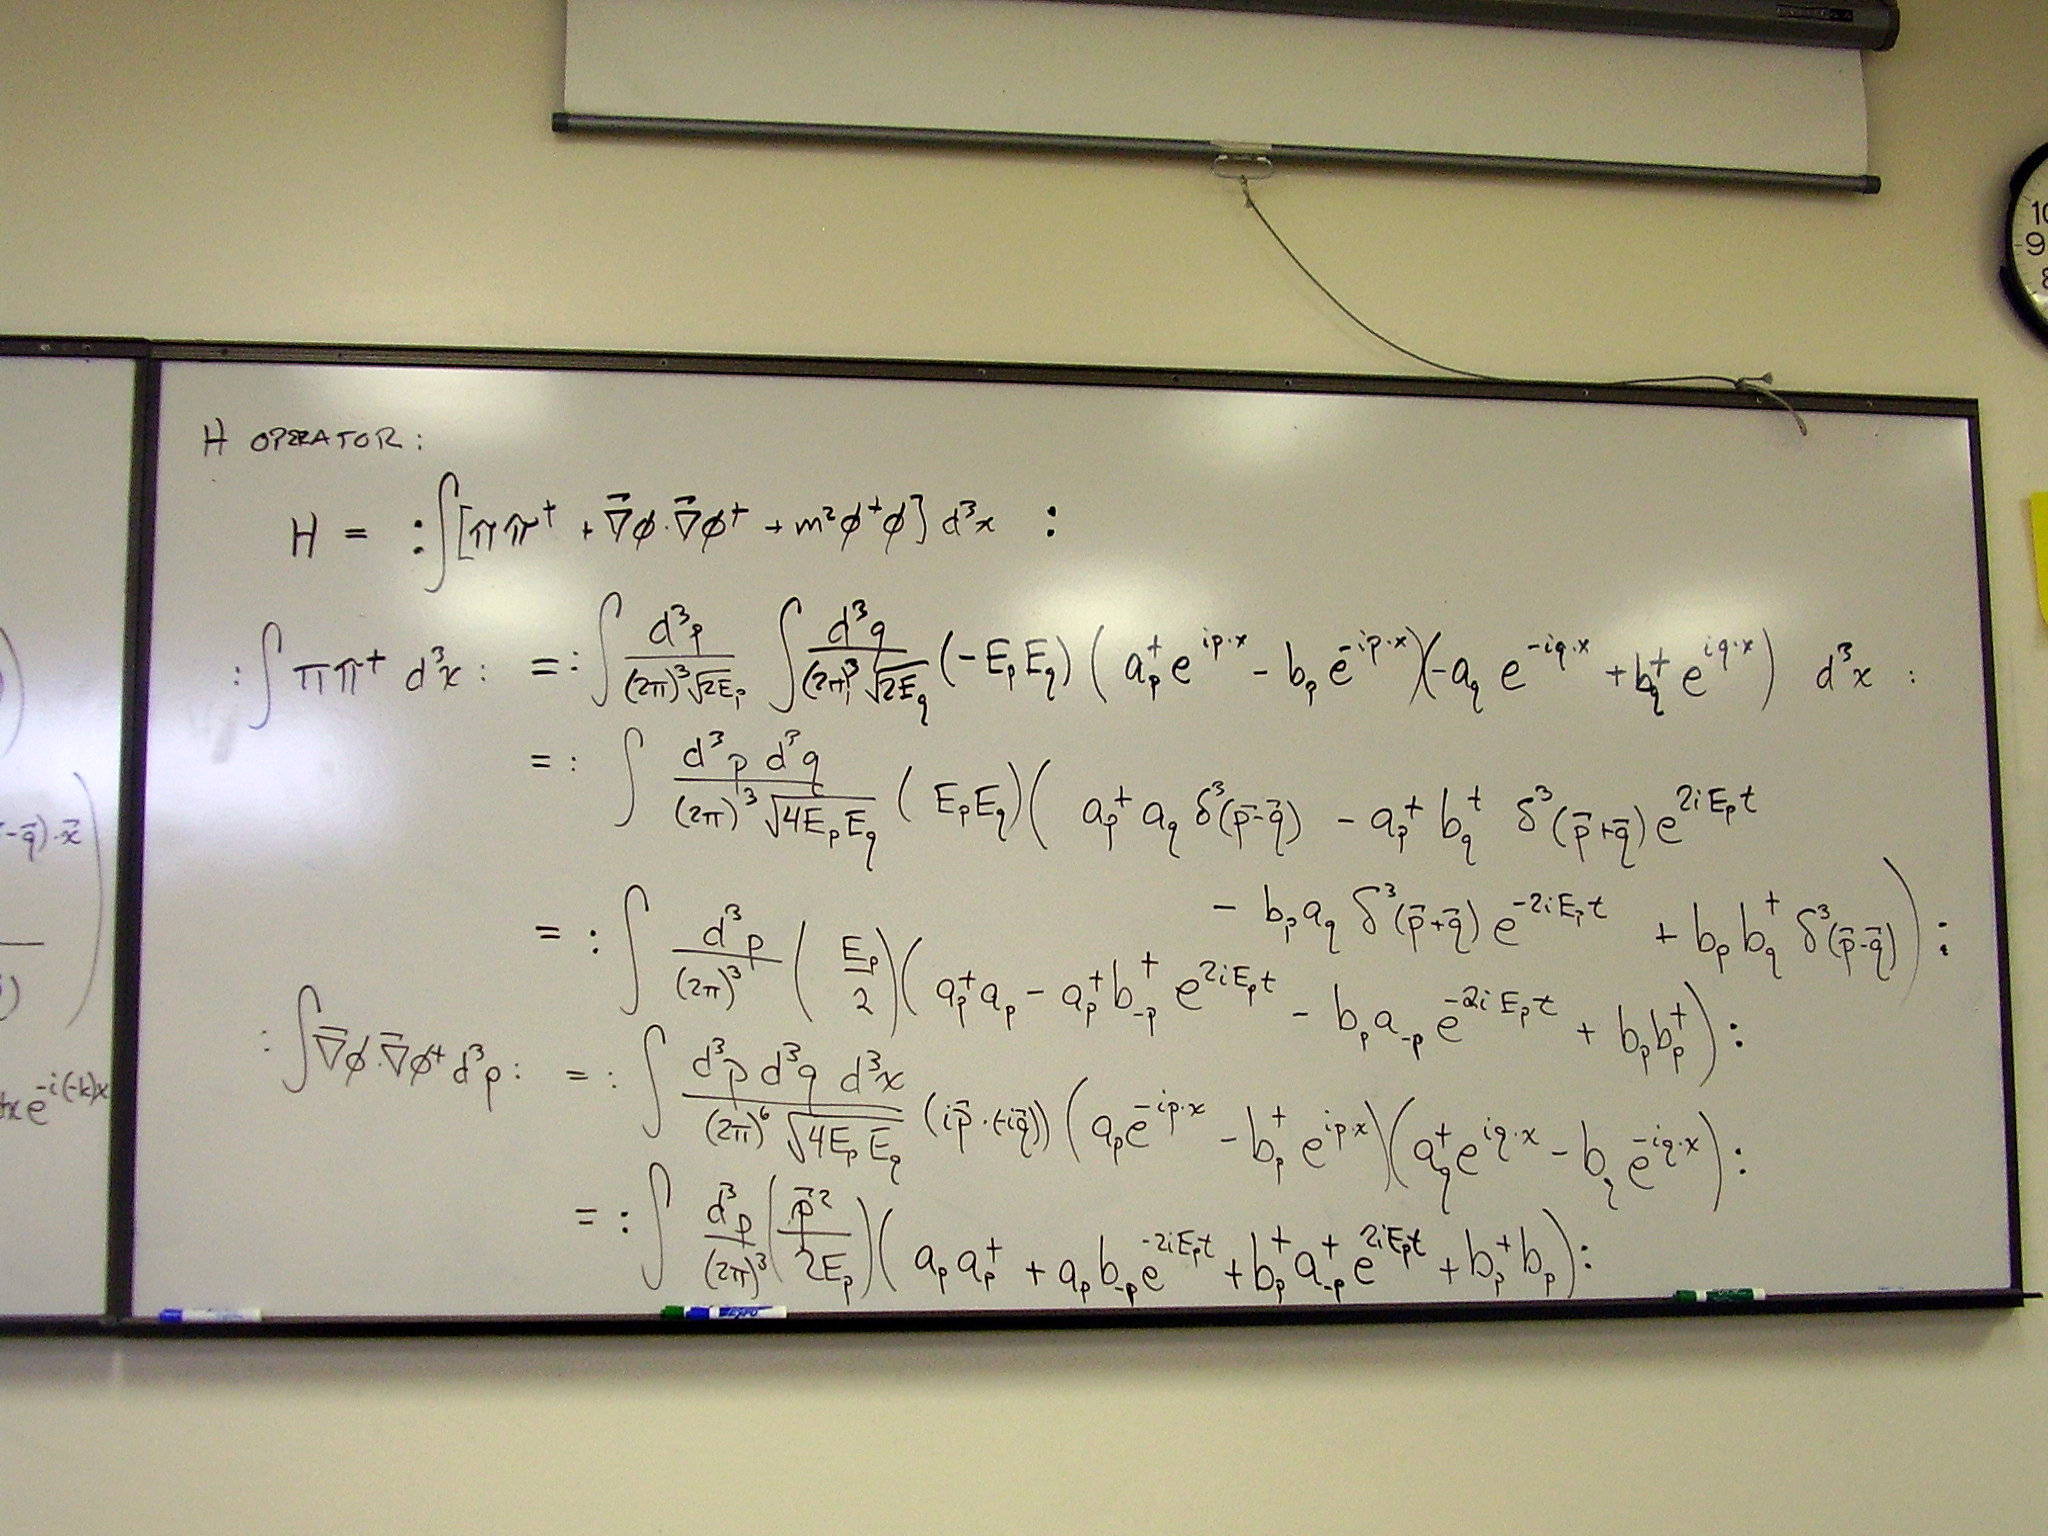 10
9
8
H OPERATOR:
H = :∫[ππ† + ∇⃗φ·∇⃗φ† + m²φ†φ] d³x :
:∫ππ† d³x: = :∫ d³p/((2π)³√(2E_p)) ∫ d³q/((2π)³√(2E_q)) (-E_pE_q) (a_p† e^{ip·x} - b_p e^{-ip·x})(-a_q e^{-iq·x} + b_q† e^{iq·x}) d³x :
= : ∫ d³p d³q/((2π)³√(4E_pE_q)) (E_pE_q)( a_p† a_q δ³(p⃗-q⃗) - a_p† b_q† δ³(p⃗+q⃗) e^{2iE_pt}
- b_p a_q δ³(p⃗+q⃗) e^{-2iE_pt} + b_p b_q† δ³(p⃗-q⃗) ) :
= : ∫ d³p/(2π)³ (E_p/2)( a_p† a_p - a_p† b_{-p}† e^{2iE_pt} - b_p a_{-p} e^{-2iE_pt} + b_p b_p† ) :
:∫∇⃗φ·∇⃗φ† d³p: = : ∫ d³p d³q d³x/((2π)⁶√(4E_pE_q)) (ip⃗·(-iq⃗)) (a_p e^{-ip·x} - b_p† e^{ip·x})(a_q† e^{iq·x} - b_q e^{-iq·x}) :
= : ∫ d³p/(2π)³ (p⃗²/2E_p)( a_p a_p† + a_p b_{-p} e^{-2iE_pt} + b_p† a_{-p}† e^{2iE_pt} + b_p† b_p ) :
-q⃗)·x⃗
)
e^{-i(-k)x}